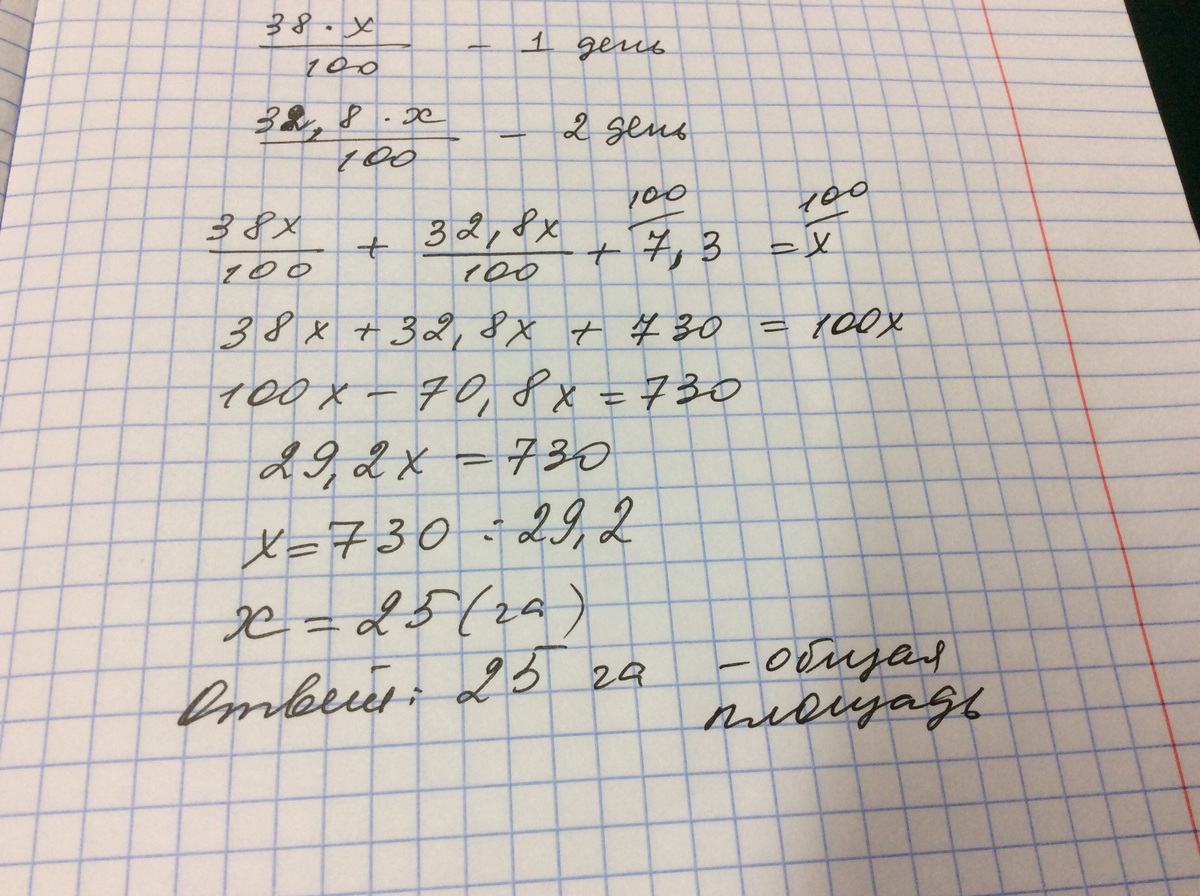 38 · x / 100 - 1 день
32,8 · x / 100 - 2 день
38x/100 + 32,8x/100 + 7,3 100/ = x 100/
38x + 32,8x + 730 = 100x
100x - 70,8x = 730
29,2x = 730
x = 730 : 29,2
x = 25 (га)
Ответ: 25 га - общая
площадь